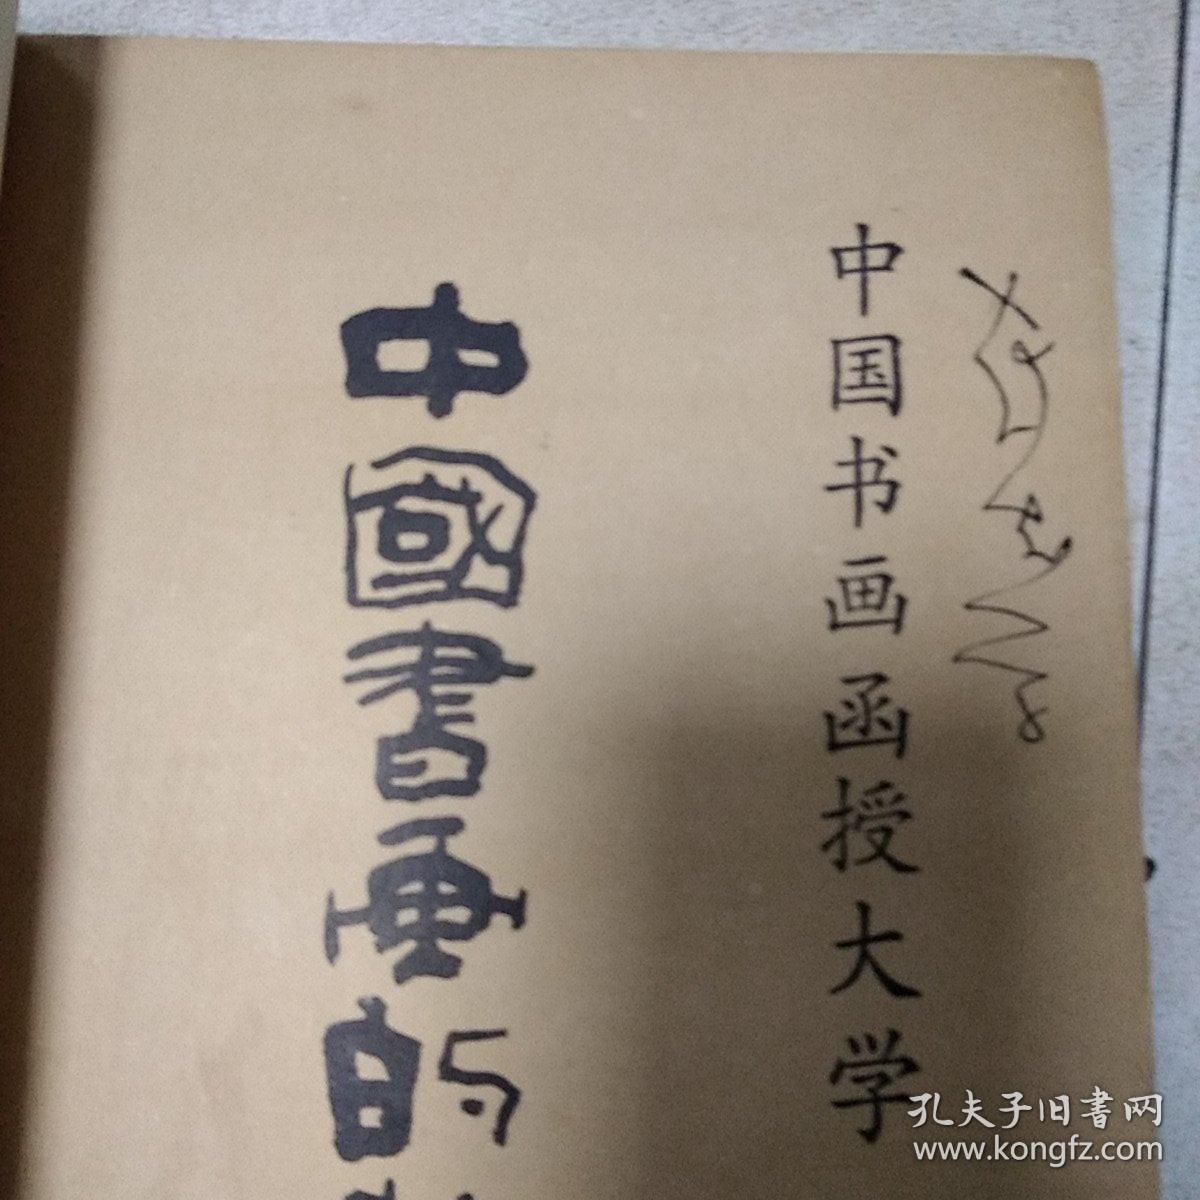 中国书画函授大学
中國書画的
孔夫子旧書网
www.kongfz.com